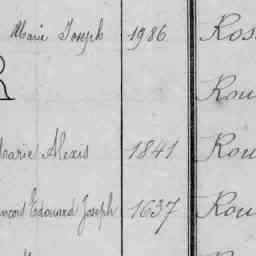 Marie Joseph 1986 Ros
R Rou
Marie Alexis 1841 Rou
ncois Edouard Joseph 1637 Rou